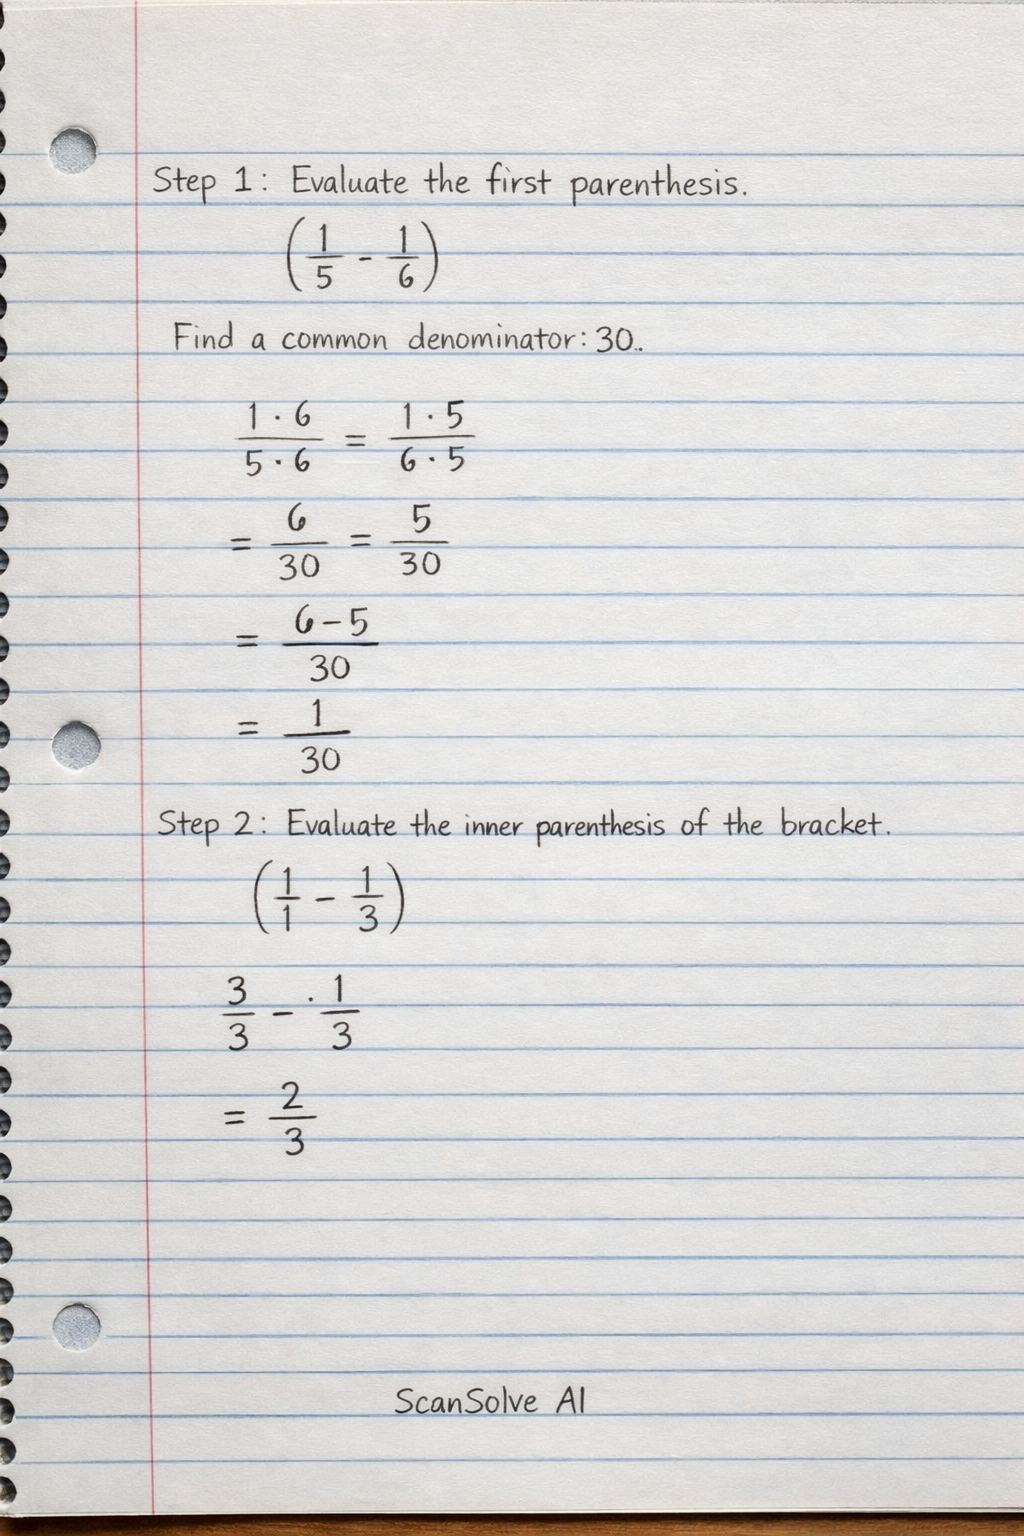 Step 1: Evaluate the first parenthesis.
(1/5 - 1/6)
Find a common denominator: 30..
1 · 6/5 · 6 = 1 · 5/6 · 5
= 6/30 = 5/30
= 6 – 5/30
= 1/30
Step 2: Evaluate the inner parenthesis of the bracket.
(1/1 – 1/3)
3/3 – · 1/3
= 2/3
ScanSolve AI